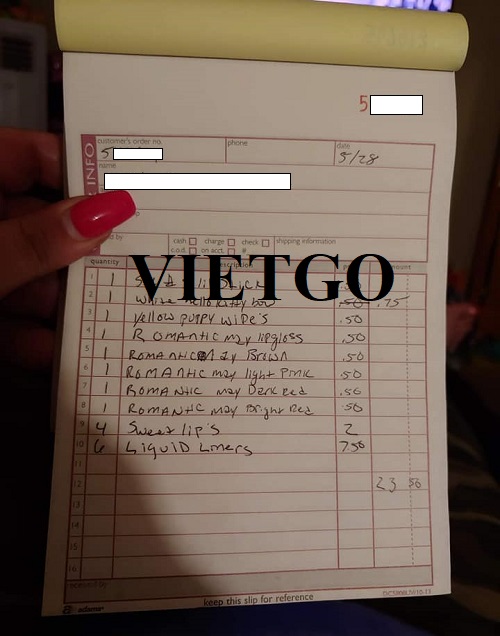 5
customer's order no.
phone
date
5
5/28
INFO
name
cash
charge
check
shipping information
c.o.d.
on acct.
#
quantity
VIETGO
1 1
2 1 White Hello Kitty bow .50 .75
3 1 Yellow puppy wipe's .50
4 1 ROMANTIC may lipgloss .50
5 1 ROMANTIC May Brown .50
6 1 ROMANTIC may light Pink .50
7 1 ROMANTIC may Dark Red .50
8 1 ROMANTIC may Bright Red .50
9 4 Sweet lip's 2
10 6 Liquid Liners 7.50
11
12 23 50
13
14
15
16
received by
adams
keep this slip for reference